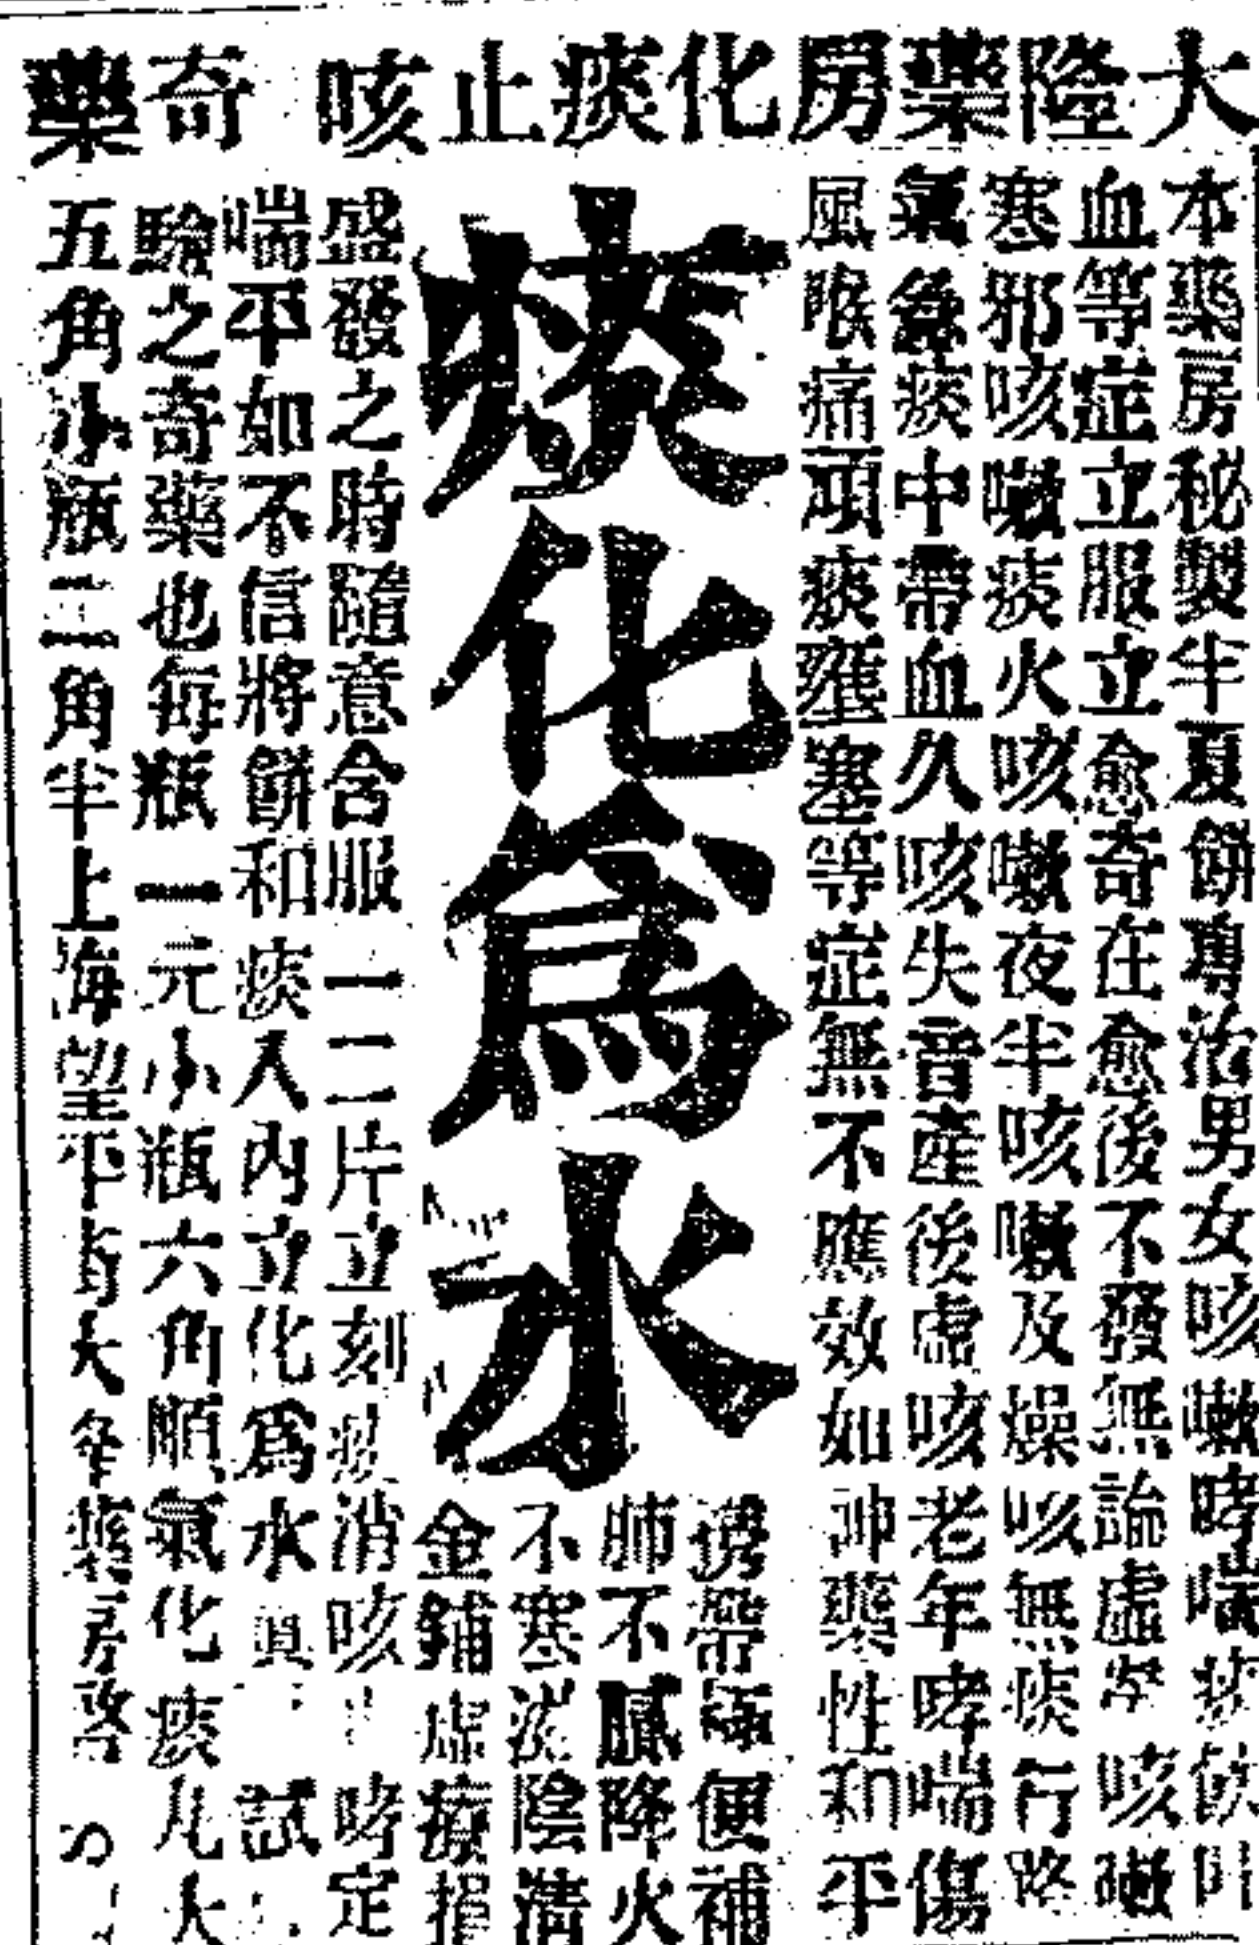 大隆藥房化痰止咳奇藥
本藥房秘製半夏餅專治男女咳嗽哮喘痰飲
血等症立服立愈奇在愈後不發無論虛咳嗽
寒邪咳嗽痰火咳嗽夜半咳嗽及燥咳無痰行路
氣急痰中帶血久咳失音產後虛咳老年哮喘傷
風喉痛項痰壅塞等症無不應效如神藥性和平
痰化為水
攜帶極便補
肺不膩降火
不寒滋陰清
金鋪虛療
盛發之時隨意含服一二片立刻痰消咳止哮定
喘平如不信將餅和痰入內立化為水真試
驗之奇藥也每瓶一元小瓶六角順氣化痰丸大
五角小瓶二角半上海望平街大隆藥房啓